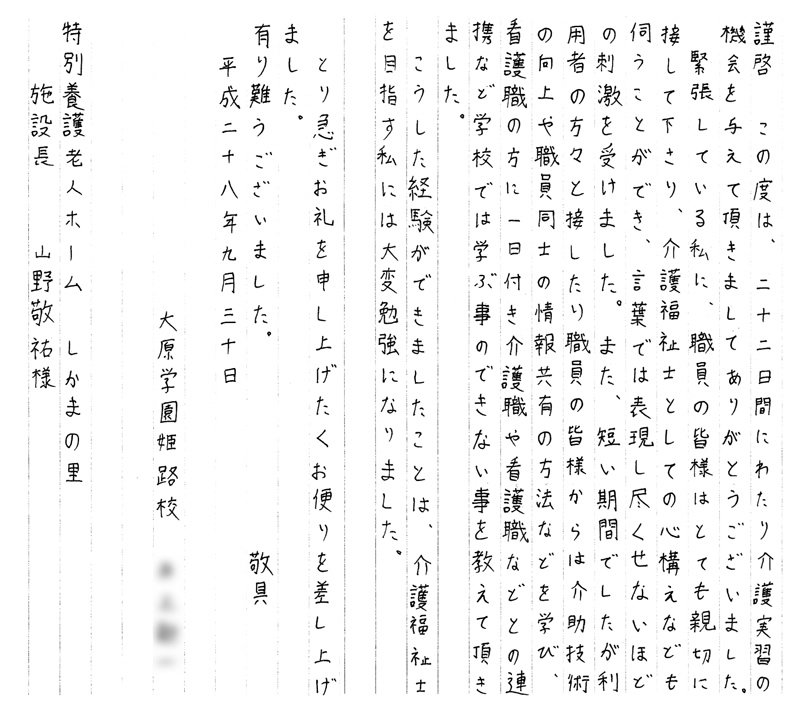 謹啓　この度は、二十二日間にわたり介護実習の
機会を与えて頂きましてありがとうございました。
　緊張している私に、職員の皆様はとても親切に
接して下さり、介護福祉士としての心構えなども
伺うことができ、言葉では表現し尽くせないほど
の刺激を受けました。また、短い期間でしたが利
用者の方々と接したり職員の皆様からは介助技術
の向上や職員同士の情報共有の方法などを学び、
看護職の方に一日付き介護職や看護職などとの連
携など学校では学ぶ事のできない事を教えて頂き
ました。
　こうした経験ができましたことは、介護福祉士
を目指す私には大変勉強になりました。
　とり急ぎお礼を申し上げたくお便りを差し上げ
ました。
有り難うございました。　敬具
平成二十八年九月三十日
大原学園姫路校
特別養護老人ホーム　しかまの里
施設長　山野敬祐様